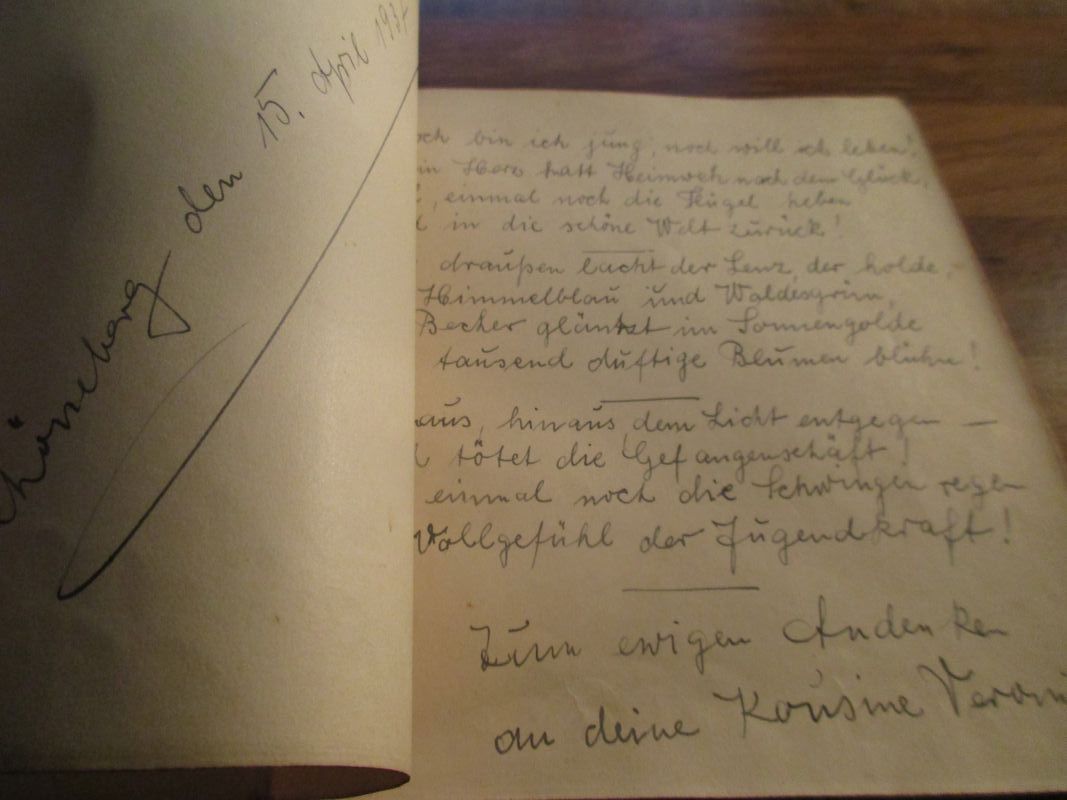 chönseberg den 15. April 193
och bin ich jung, noch will ich leben!
in Herz hatt Heimweh nach dem Glück,
einmal noch die Flügel heben
d in die schöne Welt zurück!
draußen lacht der Lenz, der holde,
Himmelblau und Waldesgrün,
Becher gläntzt im Sonnengolde
tausend duftige Blumen blühn!
aus, hinaus, dem Licht entgegen —
tötet die Gefangenschaft!
einmal noch die Schwingen regen
Vollgefühl der Jugendkraft!
Zum ewigen Andenken
an deine Kousine Veroni